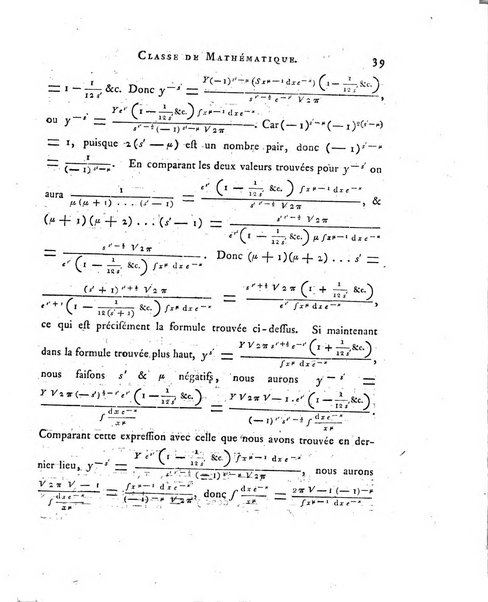 CLASSE DE MATHÉMATIQUE. 39
= 1 − 1/(12 s′) &c. Donc y^{−s′} = Y(−1)^{s′−μ} (∫x^{μ−1} dx e^{−x}) (1 − 1/(12 s′) &c.) / (s′^{s′−½} e^{−s′} V2π),
ou y^{−s′} = Y e^{s′} (1 − 1/(12 s′) &c.) ∫x^{μ−1} dx e^{−x} / (s′^{s′−½} (−1)^{s′−μ} V2π). Car (−1)^{s′−μ} (−1)^{s′−μ}
= 1, puisque 2(s′ − μ) eſt un nombre pair, donc (−1)^{s′−μ}
= 1/(−1)^{s′−μ}. En comparant les deux valeurs trouvées pour y^{−s′} on
aura 1/(μ(μ+1) . . . (s′−1)) = e^{s′} (1 − 1/(12 s′) &c.) ∫x^{μ−1} dx e^{−x} / (s′^{s′−½} V2π), &
(μ+1)(μ+2) . . . (s′−1) = s′^{s′−½} V2π / (e^{s′} (1 − 1/(12 s′) &c.) μ ∫x^{μ−1} dx e^{−x})
= s′^{s′−½} V2π / (e^{s′} (1 − 1/(12 s′) &c.) ∫x^{μ} dx e^{−x}). Donc (μ+1)(μ+2) . . . s′ =
(s′+1)^{s′+½} V2π / (e^{s′+1} (1 − 1/(12(s′+1)) &c.) ∫x^{μ} dx e^{−x}) = s′^{s′+½} V2π (1 + 1/(12 s′) &c.) / (e^{s′} ∫x^{μ} dx e^{−x}),
ce qui eſt préciſément la formule trouvée ci-deſſus. Si maintenant
dans la formule trouvée plus haut, y^{s′} = Y V2π s′^{s′+½} (1 + 1/(12 s′) &c.) / (e^{s′} ∫x^{μ} dx e^{−x}),
nous faiſons s′ & μ négatifs, nous aurons y^{−s′} =
Y V2π (−s′)^{½−s′} e^{s′} (1 − 1/(12 s′) &c.) / ∫ dx e^{−x}/x^{μ} = Y V2π V−1. e^{s′} (1 − 1/(12 s′) &c.) / ((−1)^{s′} s′^{s′−½} ∫ dx e^{−x}/x^{μ}).
Comparant cette expreſſion avec celle que nous avons trouvée en der-
nier lieu, y^{−s′} = Y e^{s′} (1 − 1/(12 s′) &c.) ∫x^{μ−1} dx e^{−x} / (s′^{s′−½} (−1)^{s′−μ} V2π), nous aurons
V2π V−1 / ∫ dx e^{−x}/x^{μ} = ∫x^{μ−1} dx e^{−x} / ((−1)^{−μ} V2π), donc ∫ dx e^{−x}/x^{μ} = 2π V−1 (−1)^{−μ} / ∫x^{μ−1} dx e^{−x}